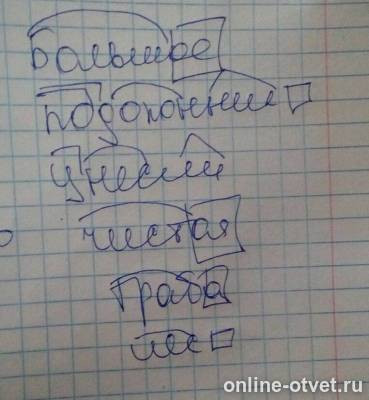 большое
подоконник
унесли
чистая
трава
лес
online-otvet.ru